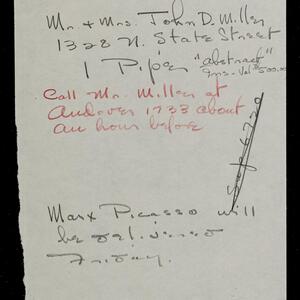 Mr. + Mrs. John D. Miller
1328 N. State Street
1 Piper "abstract"
Ins. Val $500.00
Call Mr. Miller at
Andover 1733 about
an hour before
Marx Picasso will
be delivered
Friday.